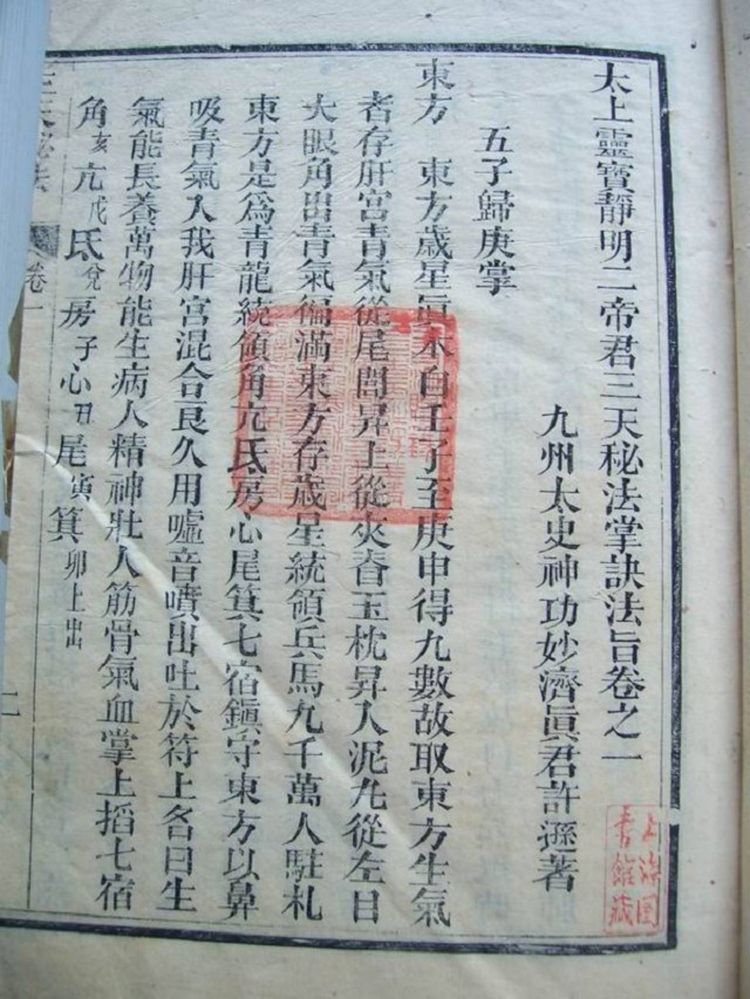 太上靈寶靜明二帝君三天秘法掌訣法旨卷之一
九州太史神功妙濟眞君許遜著
五子歸庚掌
東方　東方歲星眞木自壬子至庚申得九數故取東方生氣
者存肝宮青氣從尾閭昇上從夾脊玉枕昇入泥丸從左目
大眼角出青氣徧滿東方存歲星統領兵馬九千萬人駐札
東方是爲青龍統領角亢氐房心尾箕七宿鎭守東方以鼻
吸青氣入我肝宮混合良久用噓音噴出吐於符上各曰生
氣能長養萬物能生病人精神壯人筋骨氣血掌上搯七宿
角亥亢戌氐兌房子心丑尾寅箕卯上出
三天秘法
卷一
二
上海图
書館藏